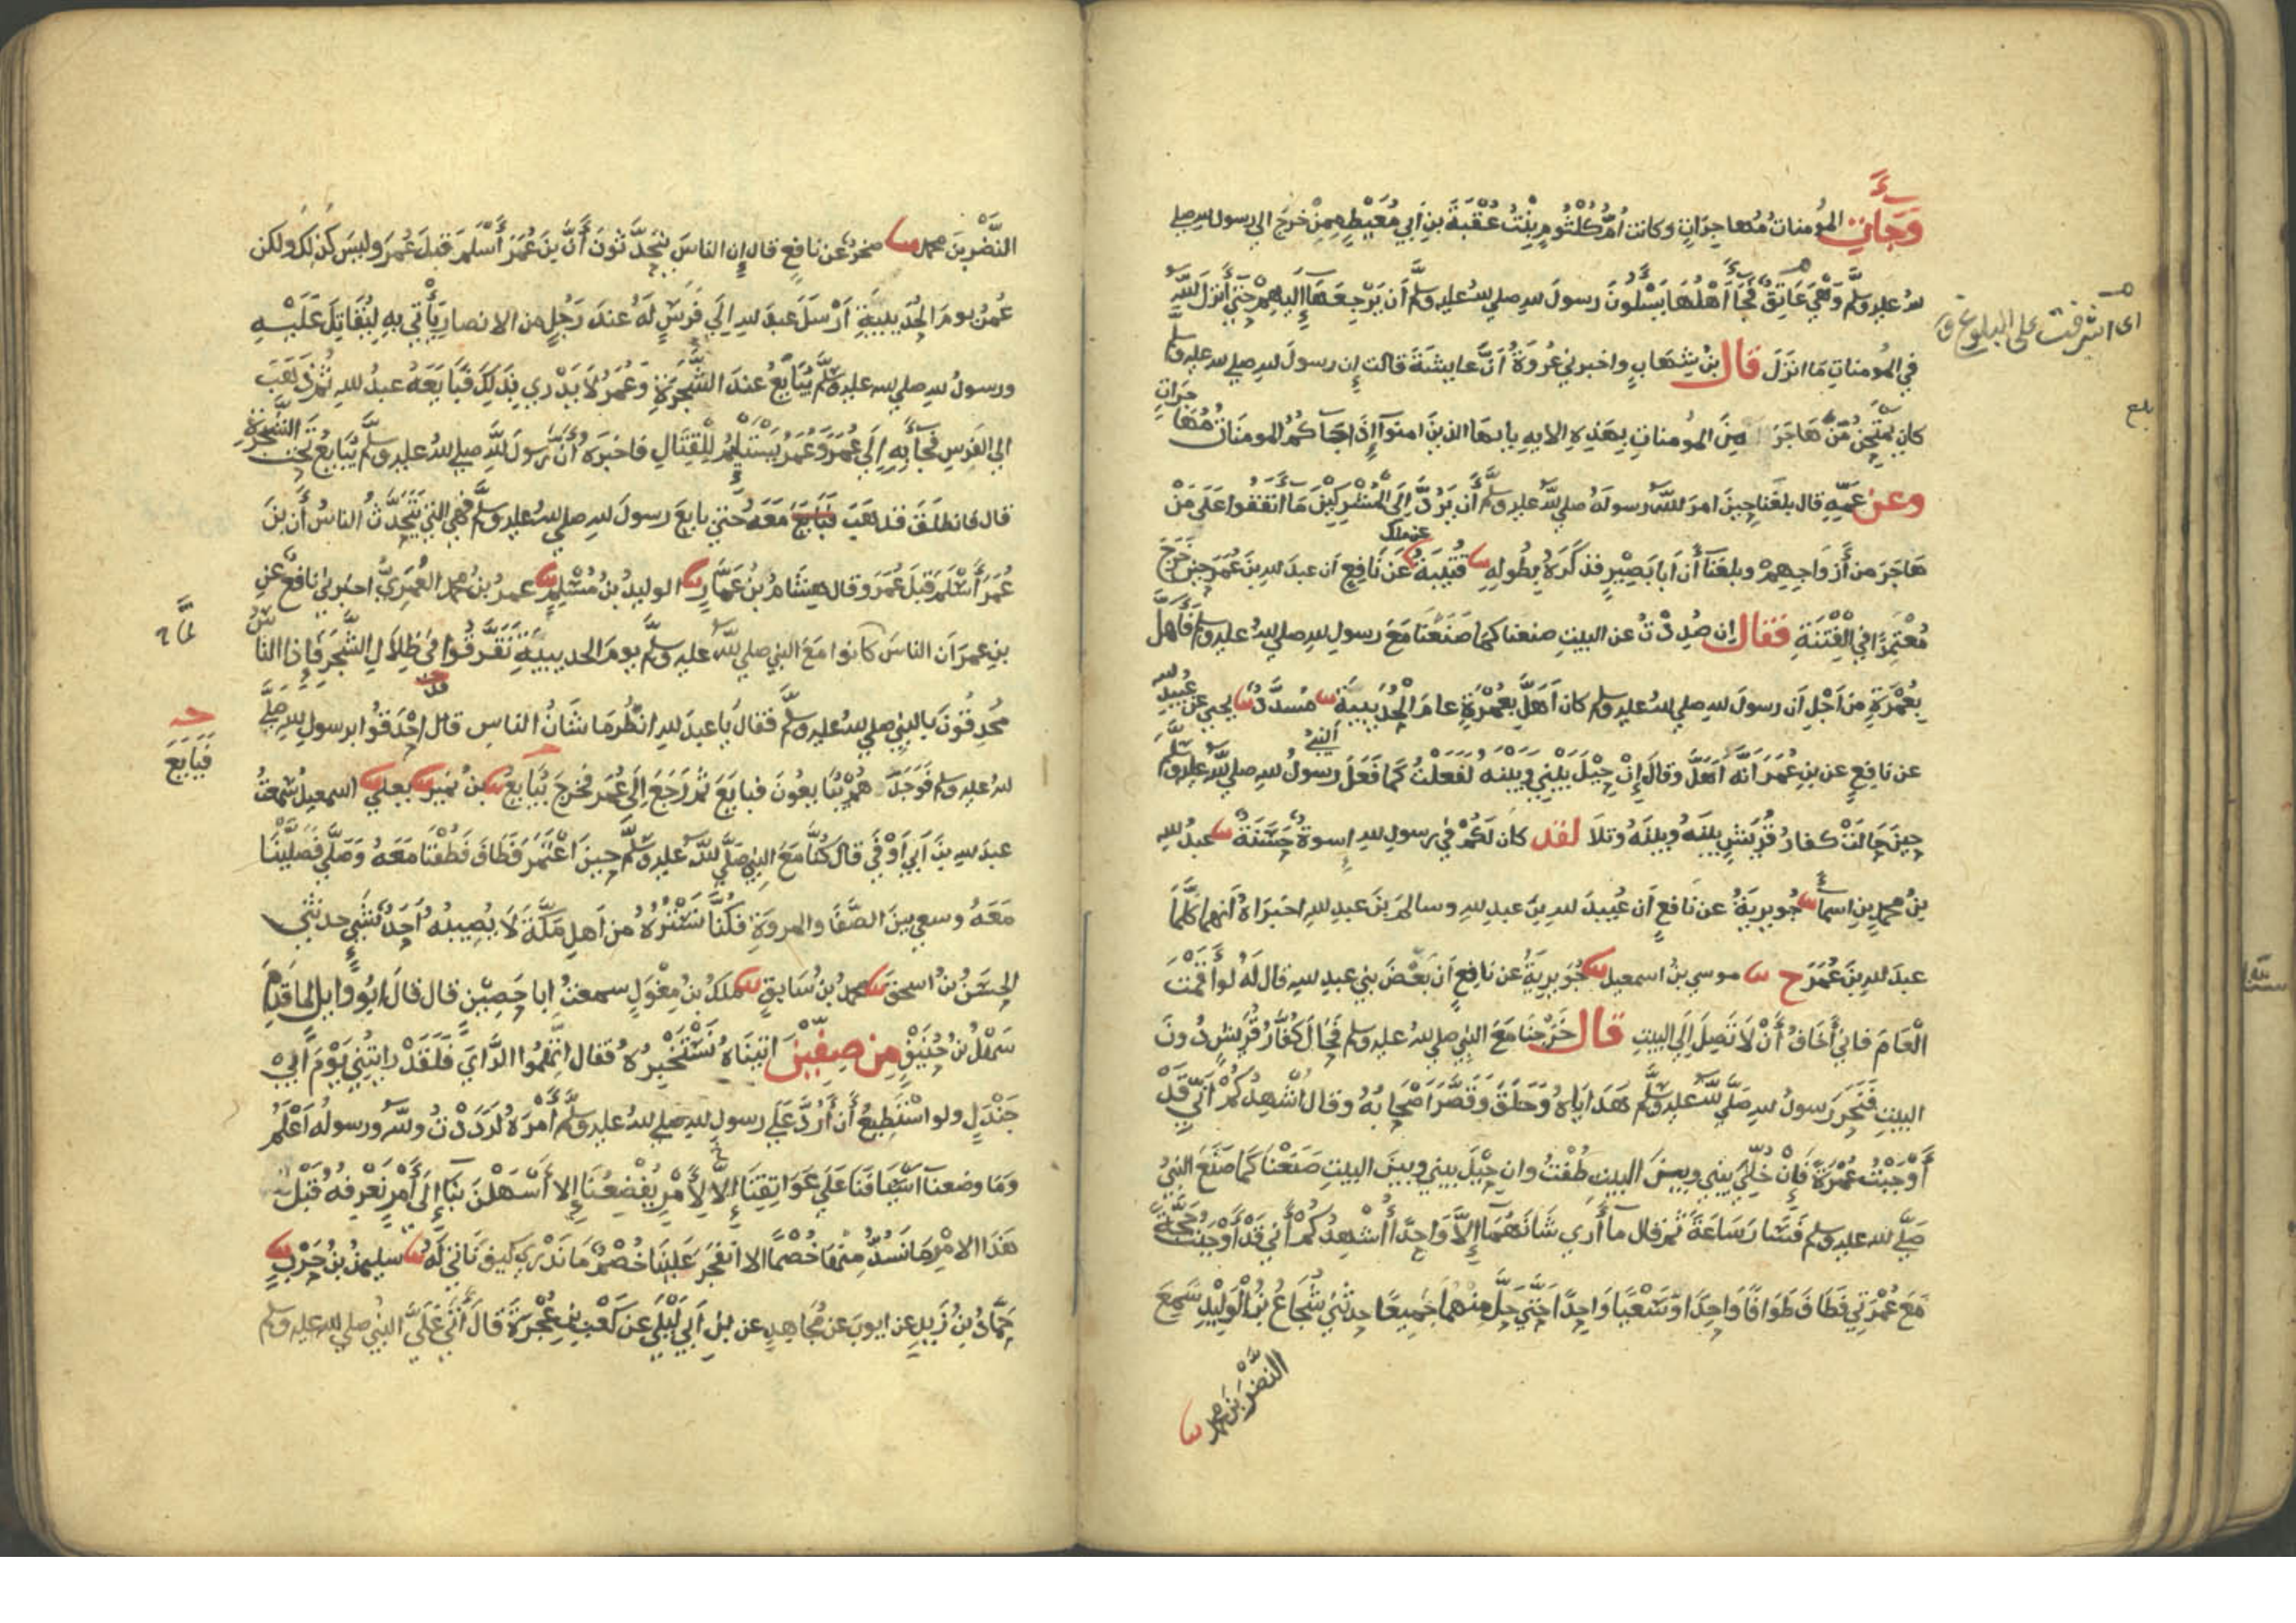 وَجَأتِ المؤمنات مُهاجِرَاتٍ وكانت أمُّ كُلْثُومٍ بِنْتُ عُقْبَةَ بنِ أبي مُعَيْطٍ مِمَّنْ خرَجَ الى رسول لله صلى
لله عليه وسلم وَهْيَ عَاتِقٌ فَجَأَ أَهْلُهَا يَسْلُونَ رسولَ لله صلى لله عليه وسلم أَن يَرْجِعَهَا إِلَيهِمْ حَتى أَنزَلَ لله
اى اشرفت على البلوغ
في المؤمناتِ مَا انزَلَ قال بنُ شِهَابٍ واخبرني عُرْوَةُ أنَّ عايشةَ قالت إن رسولَ لله صلى لله عليه وسلم
كان يَمْتَحِنُ مَنْ هَاجَرَ مِنَ المومناتِ بِهَذِهِ الايه يايها الذين امنوا إِذَا جَاكُمُ المومنَاتُ مُهَاجِرَاتٍ
بلغ
وعن عَمِّهِ قال بلغَنا حِينَ امرَ لله رسولَهُ صلى لله عليه وسلم أن يَرُدَّ إِلَى الْمُشْرِكِينَ مَا أَنفَقُوا عَلَى مَنْ
هَاجَرَ من أَزْوَاجِهِمْ وبلغَنَا أَنَّ أَبَا بَصِيْرٍ فذكَرَهُ بِطُولِهِ نا قُتَيْبَةُ عن ملك عَنْ نَافِعٍ ان عبدَ لله بنَ عُمَرَ حِينَ خَرَجَ
مُعْتَمِرًا في الْفِتْنَةِ فَقال إِن صُدِدْتُ عن البيتِ صنعنا كَمَا صَنَعْنَا مَعَ رسولِ لله صلى لله عليه وسلم فَأَهَلَّ
بِعُمْرَةٍ مِنْ أَجْلِ أن رسولَ لله صلى لله عليه وسلم كان أَهَلَّ بِعُمْرَةٍ عامَ الْحُدَيبيةِ نا مُسَدَّدٌ نا يحيى عن عُبيد لله
عن نافعٍ عن بنِ عُمَرَ أنَّهُ أَهَلَّ وقال إِنْ حِيْلَ بيني وبينهُ لفَعَلْتُ كَمَا فَعَلَ النبيُّ رسولُ لله صلى لله عليه وسلم
حِينَ حَالَتْ كفارُ قُرَيْشٍ بينَهُ وبينَهُ وتلا لقد كان لَكُمْ في رسولِ لله اسوةٌ حَسَنَةٌ نا عبدُ لله
بنُ محمدِ بنِ اسمأَ نا جُويرِيةُ عن نَافعٍ أن عُبيدَ لله بنَ عبدِ لله وسالمَ بنَ عبدِ لله اخبَرَاهُ أنهما كلَّمَا
عبدَ لله بنَ عُمَرَ ح نا موسى بنُ اسمعيل نا جُوَيرِيَةُ عن نافِعٍ أن بَعْضَ بَني عبدِ لله قال لَهُ لو أَقَمْتَ
الْعَامَ فاني أَخَافُ أَنْ لَا تَصِلَ إِلَى البيتِ قال خَرَجْنا مَعَ النبي صلى لله عليه وسلم فَحَالَ كُفَّارُ قُرَيْشٍ دُونَ
البيتِ فَنَحَرَ رَسولُ لله صَلَّى لله عليه وسلم هَدَايَاهُ وَحَلَقَ وَقَصَّرَ أَصْحَابُهُ وقال أُشْهِدُكُمْ أَنِّي قَدْ
أَوْجَبْتُ عُمْرَةً فَإِنْ خُلِّيَ بيني وبينَ البيتِ طُفْتُ وان حِيْلَ بيني وبينَ البيتِ صَنَعْنَا كَمَا صَنَعَ النبيُّ
صَلَّى لله عليه وسلم فَسَارَ سَاعَةً ثم قال مآ أُرَي شَأنَهُمَا إِلَّا وَاحِدًا أُشْهِدُكُمْ أَني قَدْ أَوْجَبْتُ حَجَّةً
مَعَ عُمْرَتِي فَطَافَ طَوَافًا وَاحِدًا وَسَعْيًا وَاحِدًا حَتَّى حَلَّ مِنْهُمَا جَمِيعًا حدثني شُجَاعُ بنُ الْوَلِيْدِ سَمِعَ
النَّضْرَ بنَ محمد نا
النَّضْرَ بنَ محمد نا صخرٌ عن نافعٍ قال إن الناسَ يتحَدَّثونَ أَنَّ بنَ عُمَرَ أَسْلَمَ قبلَ عُمَرَ وليسَ كذلكَ ولكن
عُمرُ يومَ الحُدَيبيةِ أَرْسَلَ عبدَ لله إِلَى فَرَسٍ لَهُ عندَ رَجُلٍ من الانصارِ يَأْتي بِهِ لِيُقَاتِلَ عَلَيْهِ
ورسولُ لله صلى لله عليه وسلم يُبَايِعُ عندَ الشَّجَرَةِ وَعُمَرُ لَا يَدْرِي بِذَلِكَ فَبَايَعَهُ عبدُ لله ثُمَّ ذَهَبَ
إلى الفَرَسِ فَجَأَ بِهِ إِلَى عُمَرَ وَعُمَرُ يَسْتَلْئِمُ لِلْقِتَالِ فاخبَرَهُ أَنَّ رَسُولَ لله صلى لله عليه وسلم يُبَايِعُ تَحْتَ الشَّجَرَةِ
قال فانطَلَقَ فذهَبَ فَبَايَعَ مَعَهُ حَتى بايَعَ رسولَ لله صلى لله عليه وسلم فهي التي يَتَحَدَّثُ الناسُ أَن بنَ
عُمَرَ أَسْلَمَ قبلَ عُمَرَ وقال هِشَامُ بنُ عَمَّارٍ نا الوليدُ بنُ مُسْلِمٍ نا عمرُ بنُ محمدٍ العُمَرِيُّ اخبرني نافعٌ عنِ
بنِ عمرَ ان الناسَ كانوا مَعَ النبي صلى لله عليه وسلم يومَ الحديبيةِ تَفَرَّقُوا في ظِلَالِ الشَّجَرِ فَإِذا الناسُ
مُحدِقُونَ بالنبي صلى لله عليه وسلم فقال يَا عبدَ لله انظُرْ مَا شَأنُ الناسِ قد احْدَقُوا برسولِ لله صلى
فَبَايَعَ
لله عليه وسلم فوَجَدَهُمْ يُبَايعُونَ فبايَعَ ثم رَجَعَ إِلَى عُمَرَ فخرجَ يُبَايعُ نا بنُ نُمَيرٍ نا يعلى نا اسمعيلُ سَمِعتُ
عبدَ لله بنَ أَبي أَوْفَى قال كُنَّا مَعَ النبي صَلَّى لله عليه وسلم حِينَ اعْتَمَرَ فَطَافَ فَطُفْنَا مَعَهُ وَصَلَّى فَصَلَّيْنَا
مَعَهُ وسعى بينَ الصَّفَا والمروةِ فكُنَّا نَسْتُرُهُ من أَهلِ مَكَّةَ لَا يُصِيبُهُ أَحَدٌ بِشَيءٍ حدثني
الحسَنُ بنُ اسحقَ نا محمدُ بنُ سَابِقٍ نا ملكُ بنُ مِغْوَلٍ سمعتُ ابا حَصِيْنٍ قال قالَ ابُو وايلٍ لمَّا قَدِمَ
سَهْلُ بنُ حُنَيْفٍ مِن صِفِّيْنَ اتيناهُ نَسْتَخْبِرُهُ فقال اتَّهِمُوا الرَّايَ فَلَقَدْ رايتُني يَوْمَ أَبِي
جَنْدَلٍ ولو اسْتَطِيعُ أَن أَرُدَّ عَلَى رسولِ لله صلى لله عليه وسلم أَمْرَهُ لرَدَدْتُ ولله ورسولُه أَعْلَمُ
وَمَا وضعنآ أَسْيَافَنَا عَلَى عَوَاتِقِنَا لِأَمْرٍ يُفْضِعُنَا إِلا أَسْهَلْنَ بنَا إِلَى أَمْرٍ نَعْرِفُهُ قَبْلَ
هَذَا الامْرِ مَا نَسُدُّ مِنهَا خُصْمًا الا انفَجَرَ عَلَيْنَا خُصْمٌ مَا نَدْرِي كيفَ نَاتي لَهُ نا سليمنُ بنُ حَرْبٍ نا
حَمَّادُ بنُ زَيدٍ عن ايوبَ عن مُجَاهِدٍ عن بنِ أَبي لَيْلَى عن كَعْبِ بنِ عُجْرَةَ قالَ أَتَى عَلَيَّ النبيُّ صلى لله عليه وسلم